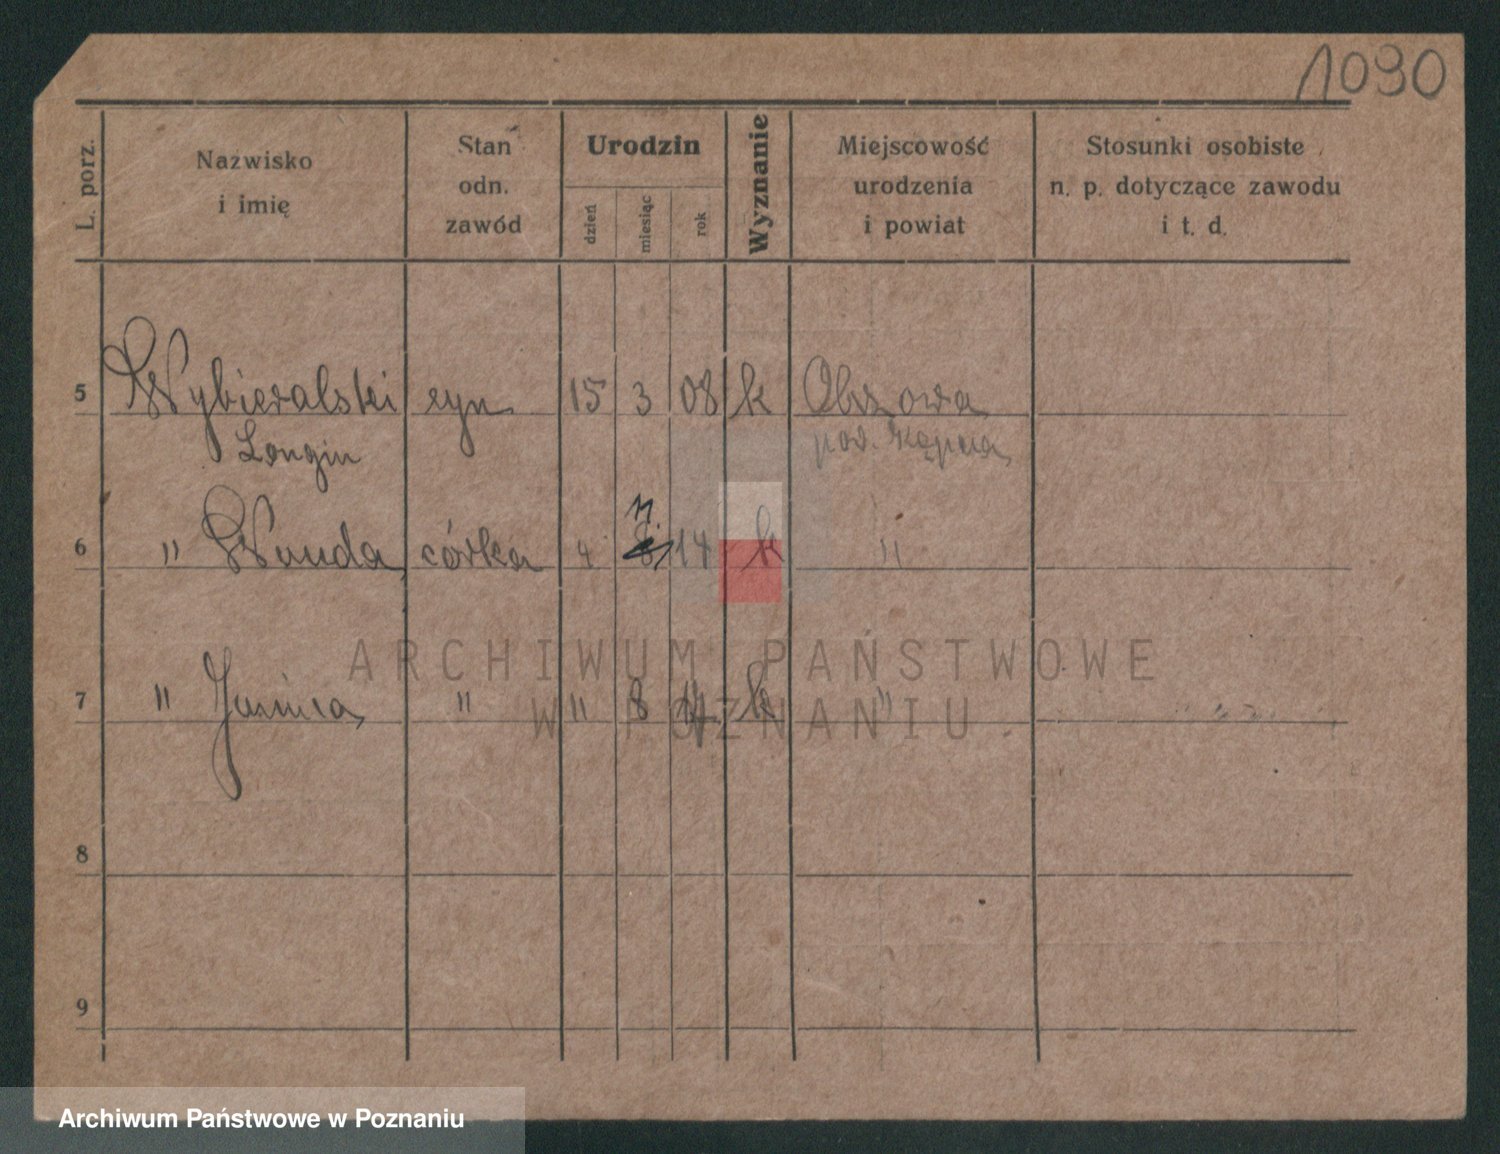 1090
L. porz. Nazwisko i imię Stan odn. zawód Urodzin dzień miesiąc rok Wyznanie Miejscowość urodzenia i powiat Stosunki osobiste n. p. dotyczące zawodu i t. d.
5 Wybieralski syn 15 3 08 k
Longin pow. Kępna
11
6 " Wanda córka 4 14 k "
ARCHIWUM PAŃSTWOWE
7 " Janina " " 8 k "
W POZNANIU.
8
9
Archiwum Państwowe w Poznaniu